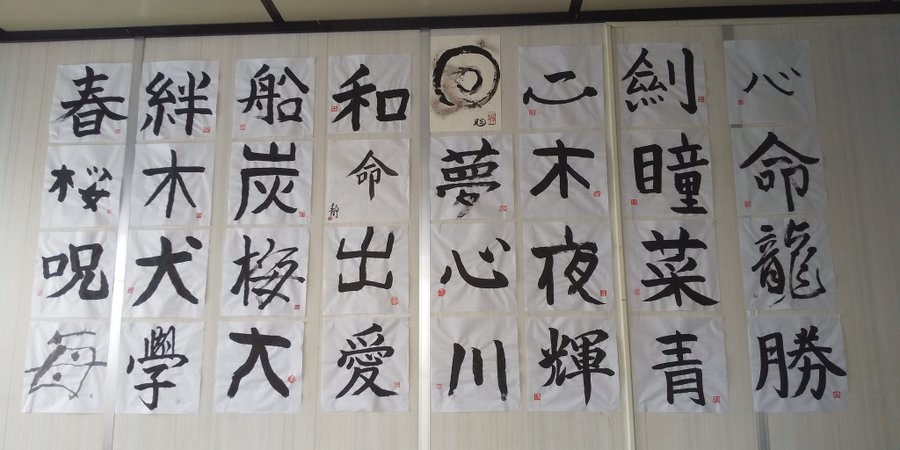 春 絆 船 和 心 劍 心
桜 木 炭 命 夢 木 瞳 命
呪 犬 梅 出 心 夜 菜 龍
學 大 愛 川 輝 青 勝